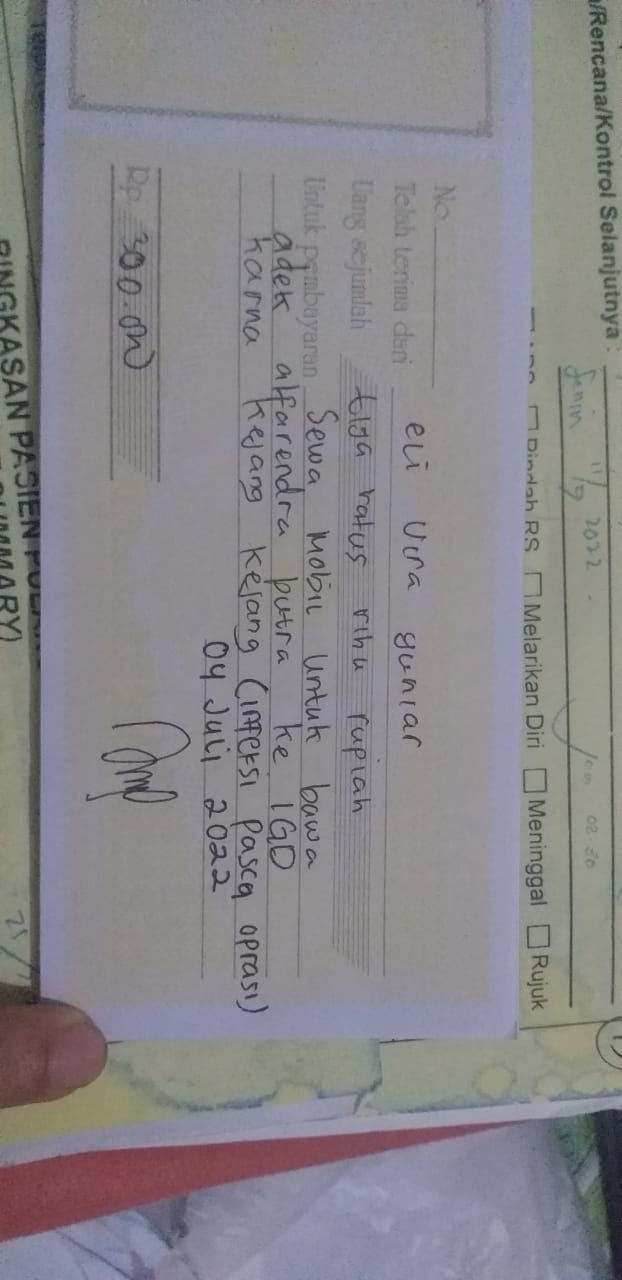 /Rencana/Kontrol Selanjutnya :
Senin 11/7 2022.
Pindah RS Melarikan Diri Meninggal Rujuk
No
Telah terima dari eli Vira yuniar
Uang sejumlah tiga ratus ribu rupiah
Untuk pembayaran Sewa Mobil Untuk bawa
adek alfarendra putra ke IGD
karna kejang kejang (infeksi pasca oprasi)
04 Juli 2022
Rp 300.000
RINGKASAN PASIEN
SUMMARY)